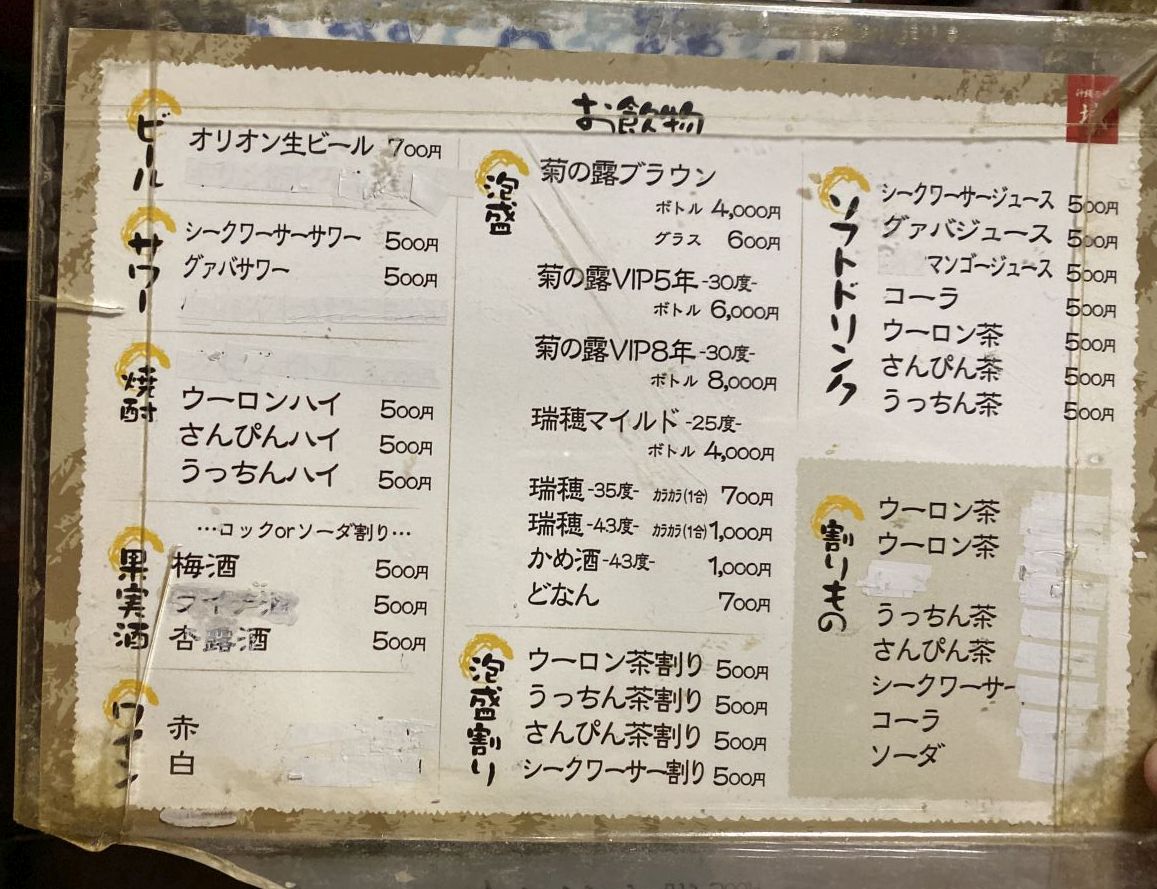 お飲物
ビール
オリオン生ビール 700円
サワー
シークワーサーサワー 500円
グァバサワー 500円
焼酎
ウーロンハイ 500円
さんぴんハイ 500円
うっちんハイ 500円
果実酒
…ロックorソーダ割り…
梅酒 500円
500円
杏露酒 500円
ワイン
赤
白
泡盛
菊の露ブラウン
ボトル 4,000円
グラス 600円
菊の露VIP5年-30度-
ボトル 6,000円
菊の露VIP8年-30度-
ボトル 8,000円
瑞穂マイルド-25度-
ボトル 4,000円
瑞穂-35度- カラカラ(1合) 700円
瑞穂-43度- カラカラ(1合) 1,000円
かめ酒-43度- 1,000円
どなん 700円
泡盛割り
ウーロン茶割り 500円
うっちん茶割り 500円
さんぴん茶割り 500円
シークワーサー割り 500円
ソフトドリンク
シークワーサージュース 500円
グァバジュース 500円
マンゴージュース 500円
コーラ 500円
ウーロン茶 500円
さんぴん茶 500円
うっちん茶 500円
割りもの
ウーロン茶
ウーロン茶
うっちん茶
さんぴん茶
シークワーサー
コーラ
ソーダ